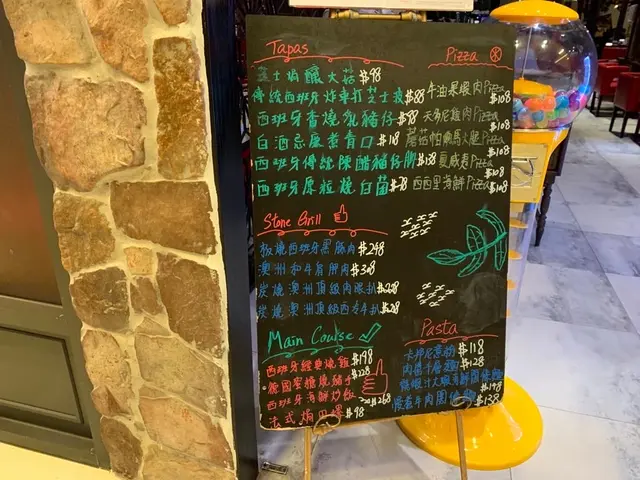 Tapas
芝士焗釀大菇 $98
傳統西班牙炸車打芝士波 $88
西班牙香燒乳豬仔 $98
白酒忌廉煮青口 $118
西班牙傳統陳醋豬仔腳 $138
西班牙原粒燒白菌 $78
Pizza
牛油果煙肉Pizza $108
天多尼雞肉Pizza $108
蘑菇帕爾馬火腿Pizza $108
夏威夷Pizza $108
西西里海鮮Pizza $108
Stone Grill
板燒西班牙黑豚肉 $248
澳洲和牛肩胛肉 $308
炭燒澳洲頂級肉眼扒 $228
炭燒澳洲頂級西冷扒 $228
Main Course
西班牙經典燒雞 $198
德國蜜糖燒豬手 $228
西班牙海鮮炒飯 $268
焗田螺 $98
Pasta
卡邦尼意粉 $118
肉醬千層麵 $128
龍蝦汁大蝦海鮮闊條麵 $198
牛肉闊條麵 $138